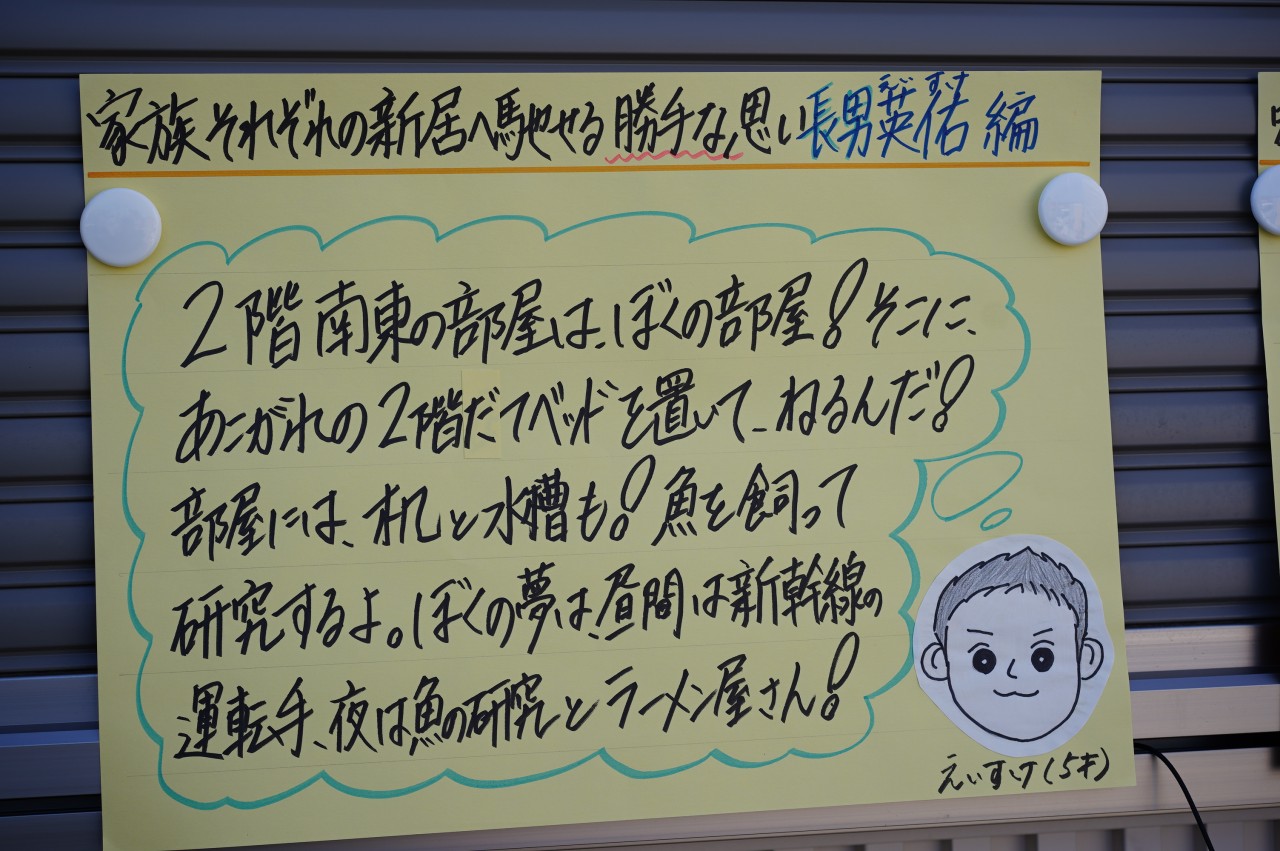 家族それぞれの新居へ馳せる勝手な思い長男英佑編
えいすけ
2階南東の部屋は、ぼくの部屋!そこに、
あこがれの2階だてベッドを置いて、ねるんだ!
部屋には、机と水槽も!魚を飼って
研究するよ。ぼくの夢は、昼間は新幹線の
運転手、夜は魚の研究とラーメン屋さん!
えいすけ(5才)